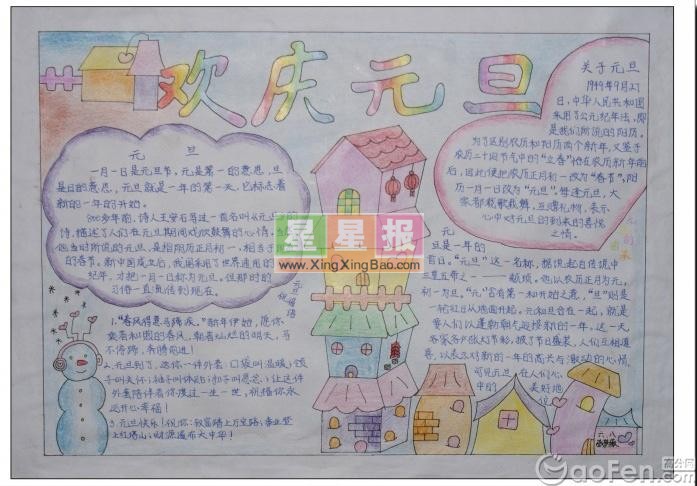 欢庆元旦
关于元旦
1949年9月27
日,中华人民共和国
采用了公元纪年法,即
是我们所说的阳历。
为了区别农历和阳历两个新年,又鉴于
农历二十四节气中的“立春”恰在农历新年前
后,因此便把农历正月初一改为“春节”,阳
历一月一日改为“元旦”。每逢元旦,大
家都载歌载舞,互赠礼物,表示
心中对元旦的到来的喜悦
之情。
元旦
一月一日是元旦节,元是第一的意思,旦
是日的意思,元旦就是一年的第一天,它标志着
新的一年的开始。
诗人王安石写过一首名叫《元日》的
诗,描述了人们在元旦期间欢欣鼓舞的心情。
他当时所说的元旦,是指阴历正月初一,相当于
的春节。新中国成立后,我国采用了世界通用的公
纪年,才把一月一日称为元旦。但那时的
习俗一直流传到现在。
元旦的来
元
旦是一年的
首日。“元旦”这一名称,据说起自传说中
三皇五帝之一——颛顼。他以农历正月为元,
初一为旦。“元”含有第一和开始之意,“旦”则是
一轮红日从地面升起,元和旦合在一起,就是
要人们以蓬勃朝气迎接新的一年,这一天
家家户户张灯节彩,披了节日盛装,人们互相道
喜,以表示对新的一年的高兴与激动的心情,
可见元旦在人们心
中的
美好地
位
元旦祝福语
1.“春风得意马蹄疾。”新年伊始,愿你
乘着和园的春风,朝着灿烂的明天,马
不停蹄,奔腾前进!
2.元旦到了,送你一件外套:口袋叫温暖;领
子叫关怀;袖子叫体贴;扣子叫思念;让这件
外套陪伴着你渡过一生一世,祝愿你永
远开心幸福!
3.元旦快乐!祝你:致富踏上万宝路;事业登
上红塔山;财源遍布大中华!
星星报
www.XingXingBao.com
高分网
GaoFen.com